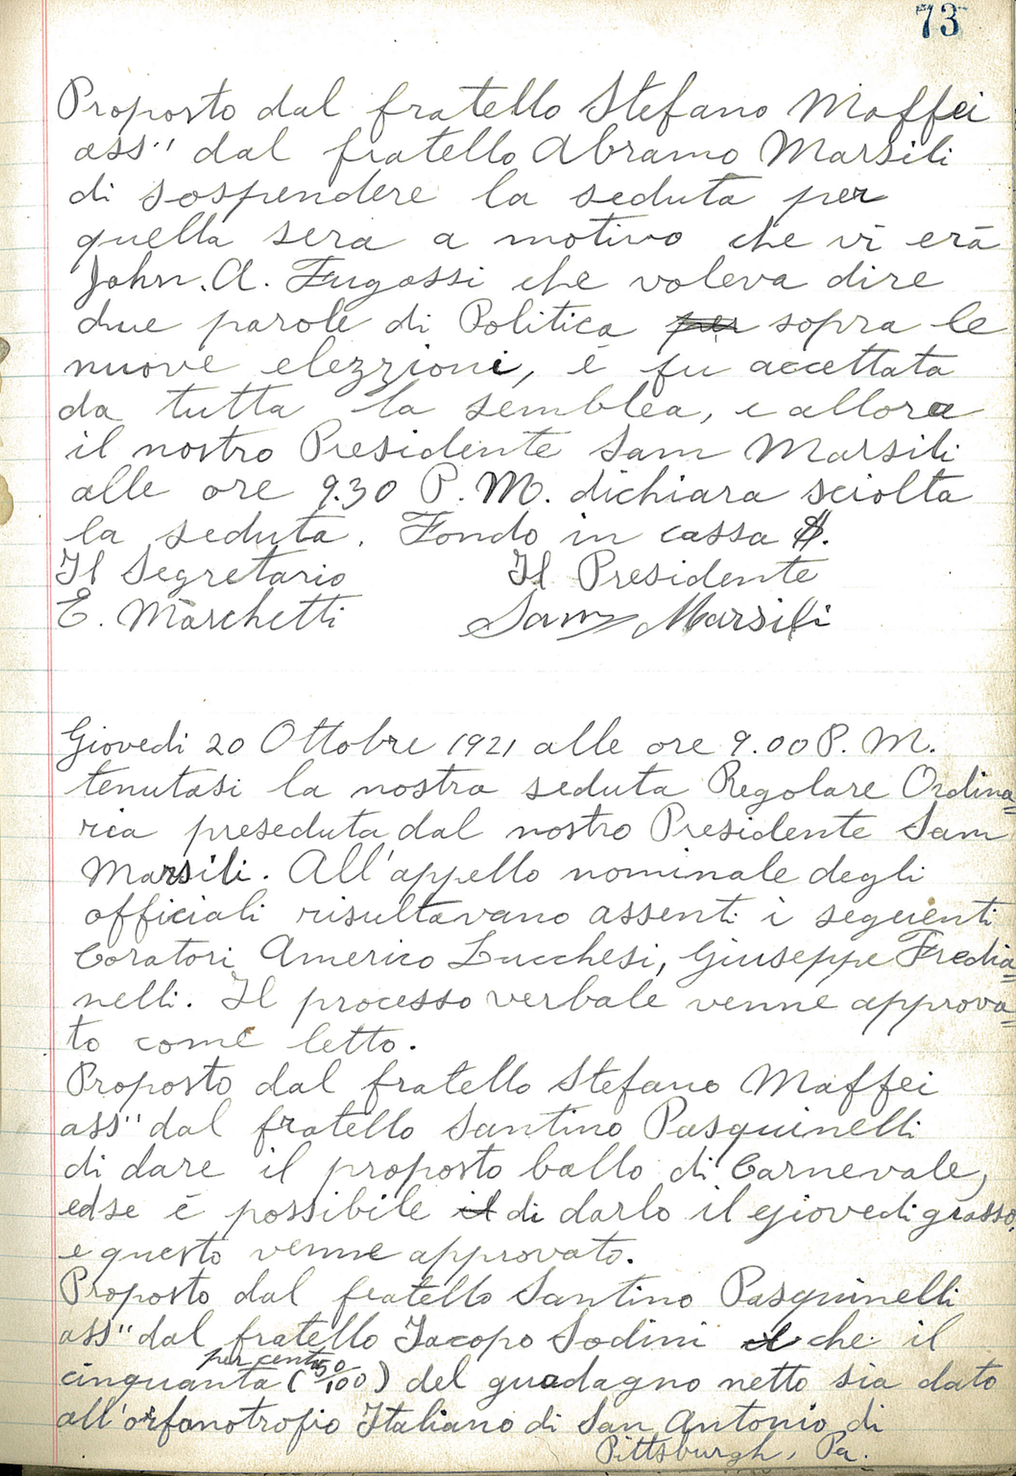 73
Proposto dal fratello Stefano Maffei
ass" dal fratello Abramo Marsili
di sospendere la seduta per
quella sera a motivo che vi era
John. A. Fugassi che voleva dire
due parole di Politica per sopra le
nuove elezzioni, e fu accettata
da tutta la semblea, e allora
il nostro Presidente Sam Marsili
alle ore 9.30 P. M. dichiara sciolta
la seduta. Fondo in cassa $.
Il Segretario Il Presidente
E. Marchetti Sam Marsili
Giovedi 20 Ottobre 1921 alle ore 9.00 P. M.
tenutasi la nostra seduta Regolare Ordina=
ria preseduta dal nostro Presidente Sam
Marsili. All'appello nominale degli
officiali risultavano assenti i seguenti
Coratori Americo Lucchesi, Giuseppe Fredia=
nelli. Il processo verbale venne approva=
to come letto.
Proposto dal fratello Stefano Maffei
ass" dal fratello Santino Pasquinelli
di dare il proposto ballo di Carnevale,
edse è possibile il di darlo il giovedi grasso,
e questo venne approvato.
Proposto dal fratello Santino Pasquinelli
ass" dal fratello Iacopo Sodini che il
per cento
cinquanta (50/100) del guadagno netto sia dato
all'orfanotrofio Italiano di San Antonio di
Pittsburgh, Pa.